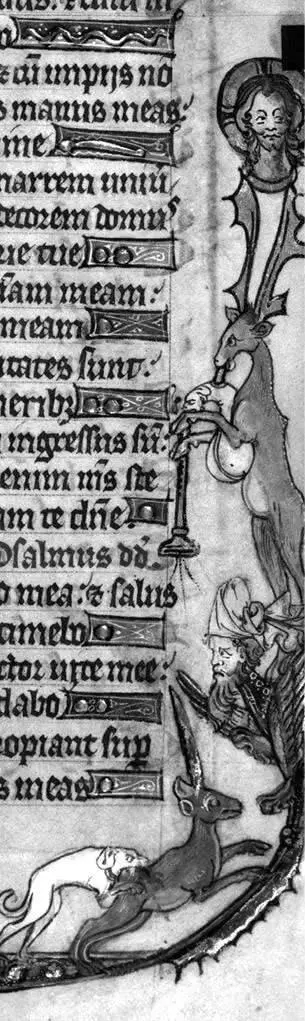 & cū impijs nō
s manus meas:
ine
narrem uniū
decorem domus
rie tue
ām meam:
meam
itates sunt:
neribꝫ
ingressus sū:
enim m̄s ste
am te dn̄e:
Psalmus dd̄
o mea: & salus
timebo
ctor uite mee:
dabo
ropiant sup
s meas